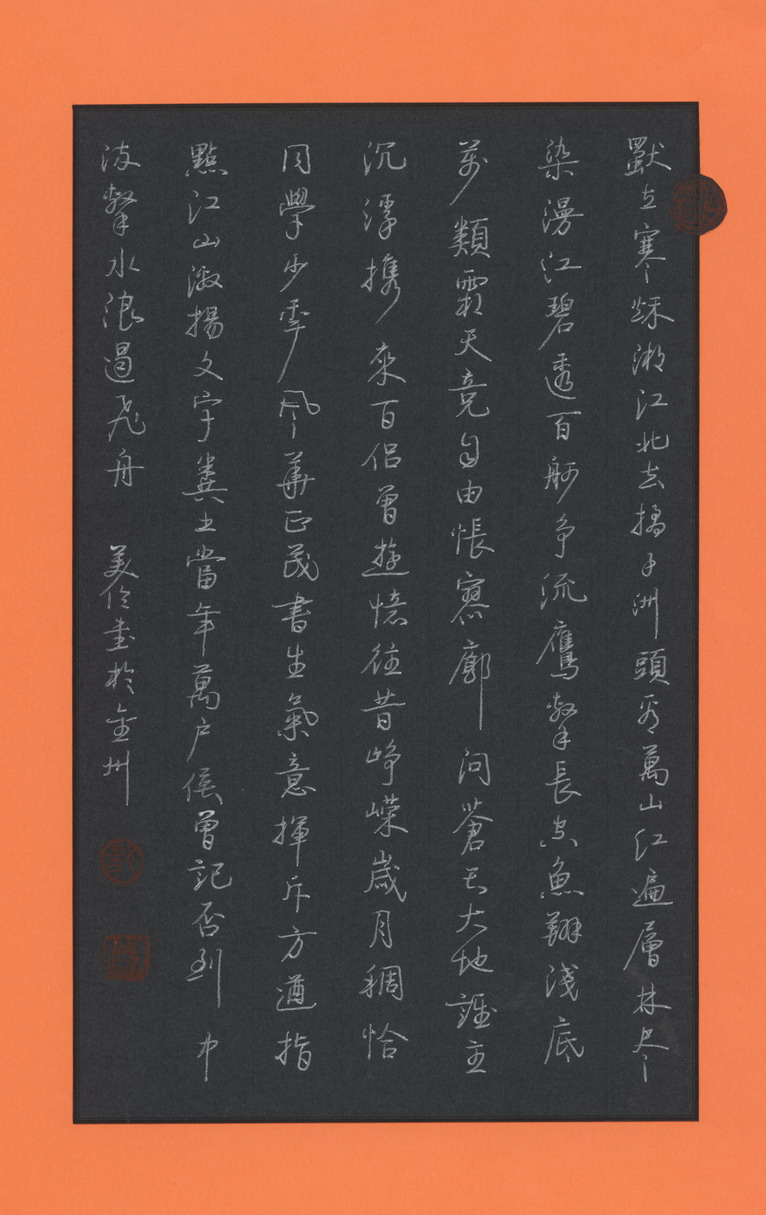 獨立寒秋湘江北去橘子洲頭看萬山红遍層林尽
染漫江碧透百舸争流鷹擊長空魚翔淺底
万類霜天竞自由悵寥廓问蒼茫大地誰主
沉浮携來百侣曾遊憶往昔崢嶸歲月稠恰
同學少年风華正茂書生氣意揮斥方遒指
點江山激揚文字糞土當年萬户侯曾記否到中
流擊水浪遏飛舟 美伶書於金州